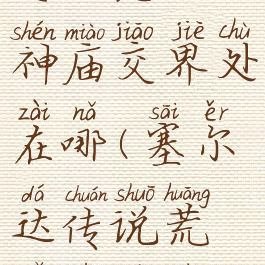 shén miào jiāo jiè chù
神庙交界处
zài nǎ sāi ěr
在哪(塞尔
dá chuán shuō huāng
达传说荒